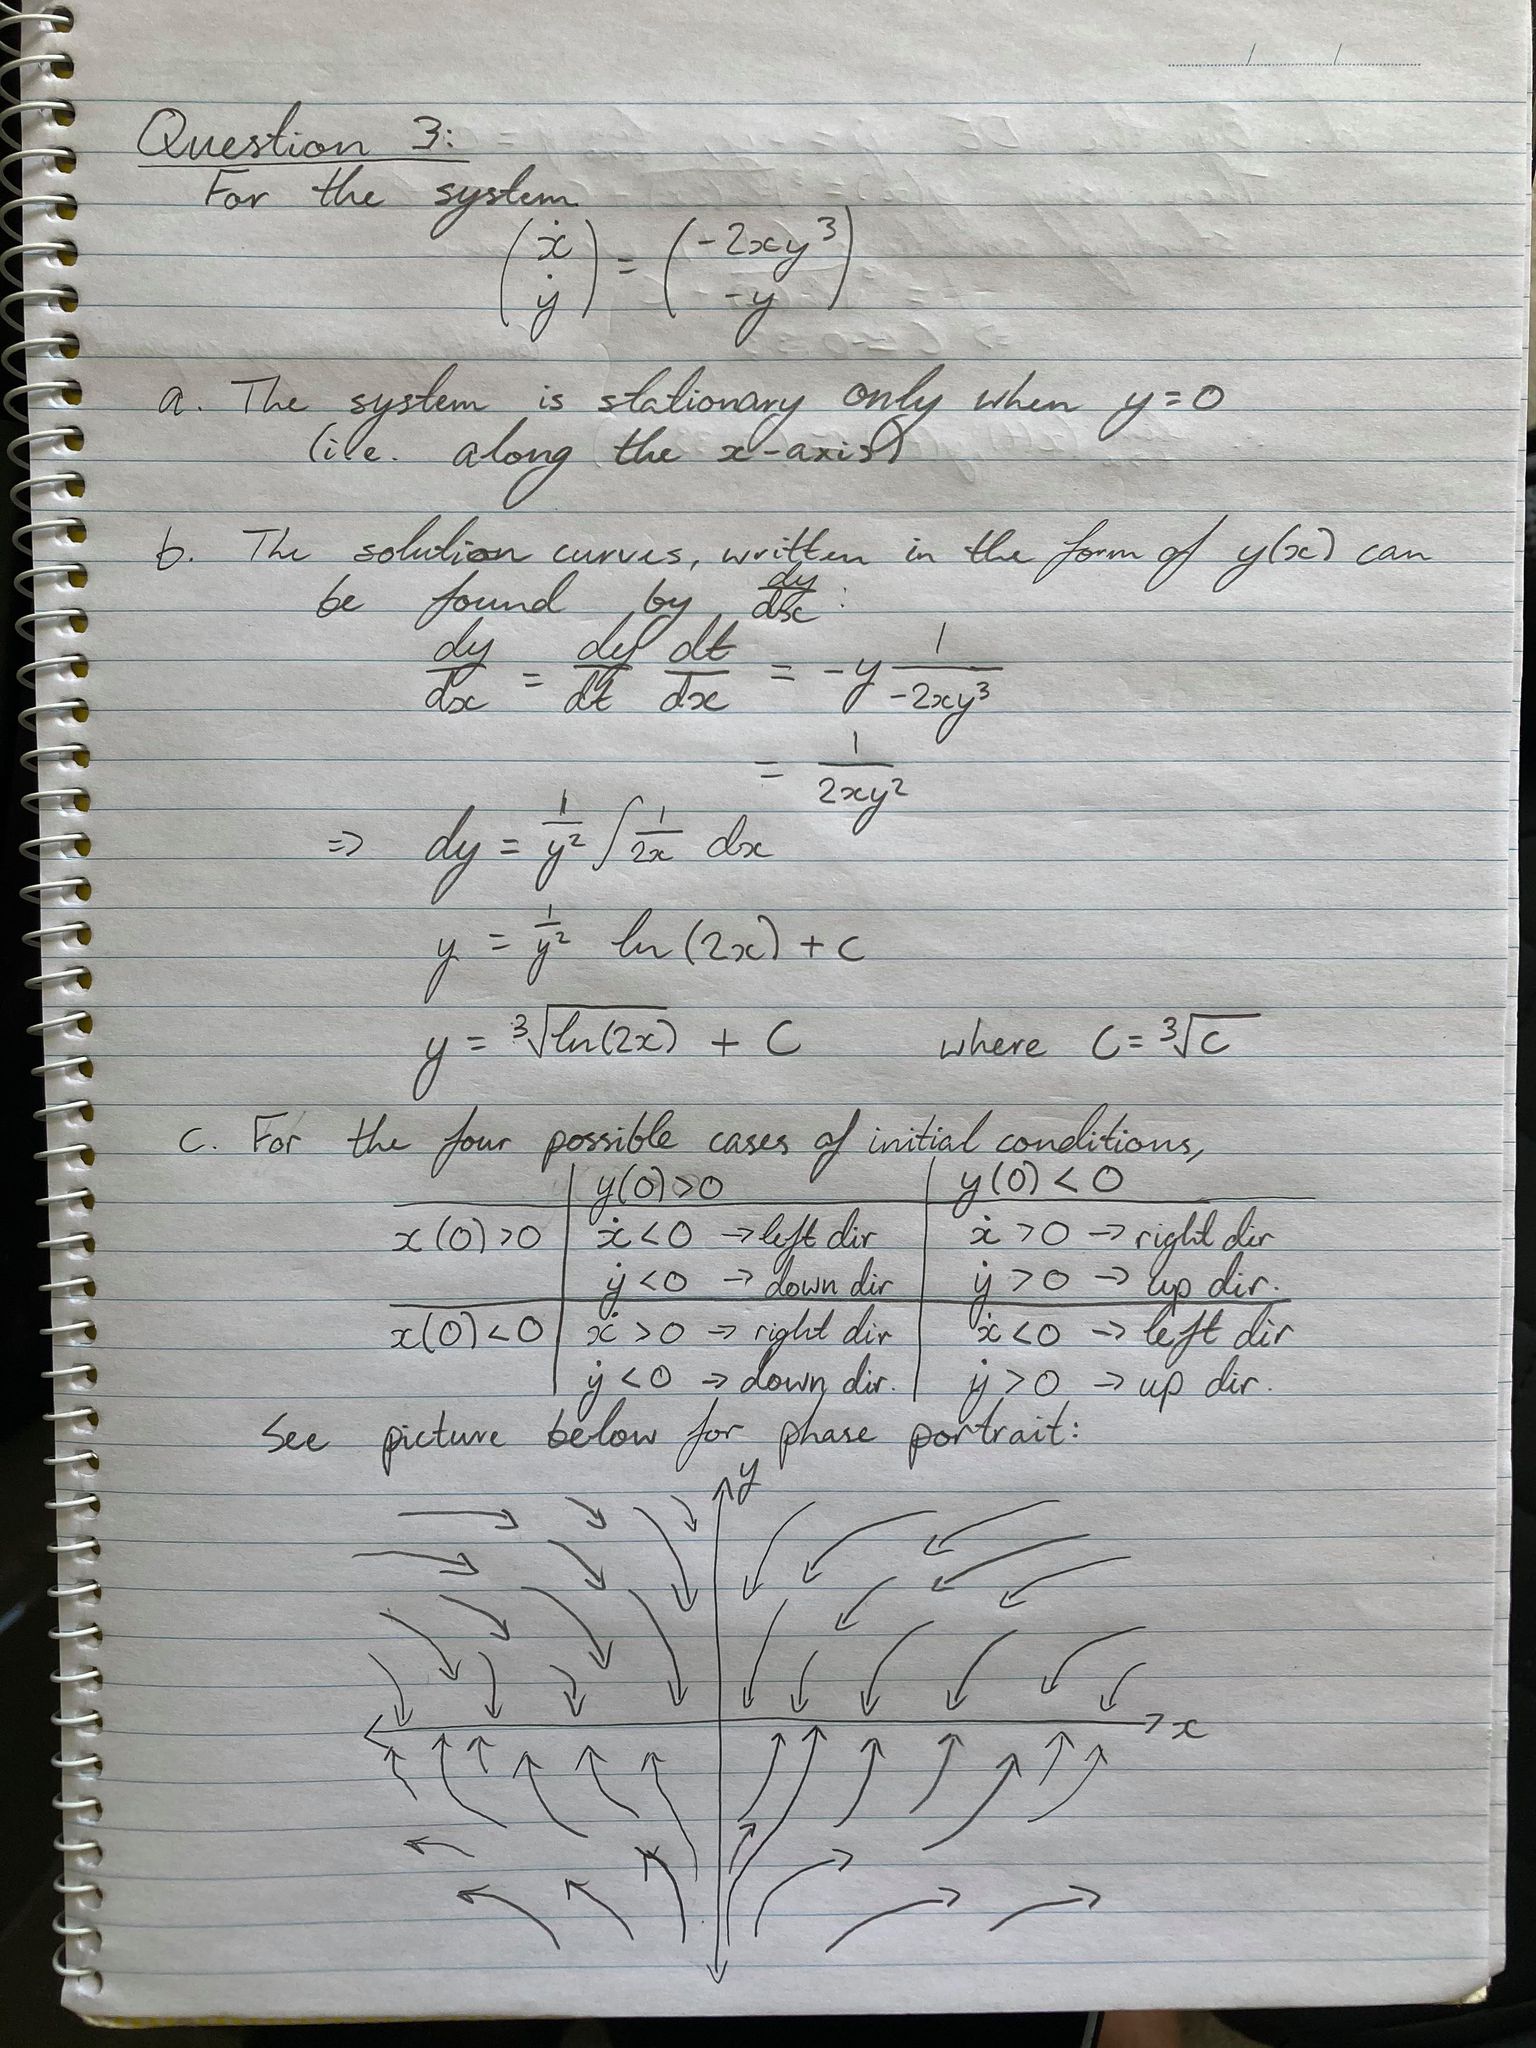 Question 3:
For the system
(ẋ ẏ) = (-2xy³ -y)
a. The system is stationary only when y=0
(i.e. along the x-axis)
b. The solution curves, written in the form of y(x) can
be found by dy/dx:
dy/dx = dy/dt dt/dx = -y 1/-2xy³
= 1/2xy²
⇒ dy = 1/y² ∫ 1/2x dx
y = 1/y² ln(2x) + c
y = ³√ln(2x) + C where C = ³√c
c. For the four possible cases of initial conditions,
y(0)>0 y(0)<0
x(0)>0 ẋ<0 → left dir ẋ>0 → right dir
ẏ<0 → down dir ẏ>0 → up dir.
x(0)<0 ẋ>0 → right dir ẋ<0 → left dir
ẏ<0 → down dir. ẏ>0 → up dir.
See picture below for phase portrait:
y
x